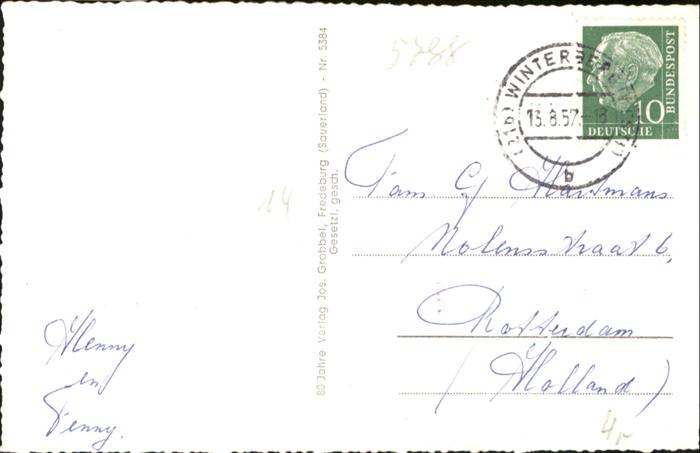 5388
(21b) WINTERBERG
13.8.57.-18
b
10
DEUTSCHE
BUNDESPOST
80 Jahre Verlag Jos. Grobbel, Fredeburg (Sauerland) - Nr. 5384
Gesetzl. gesch.
14
Fam G Hartmans
Nolensstraat 6,
Rotterdam
(Holland)
Henny
en
Fenny.
4,-